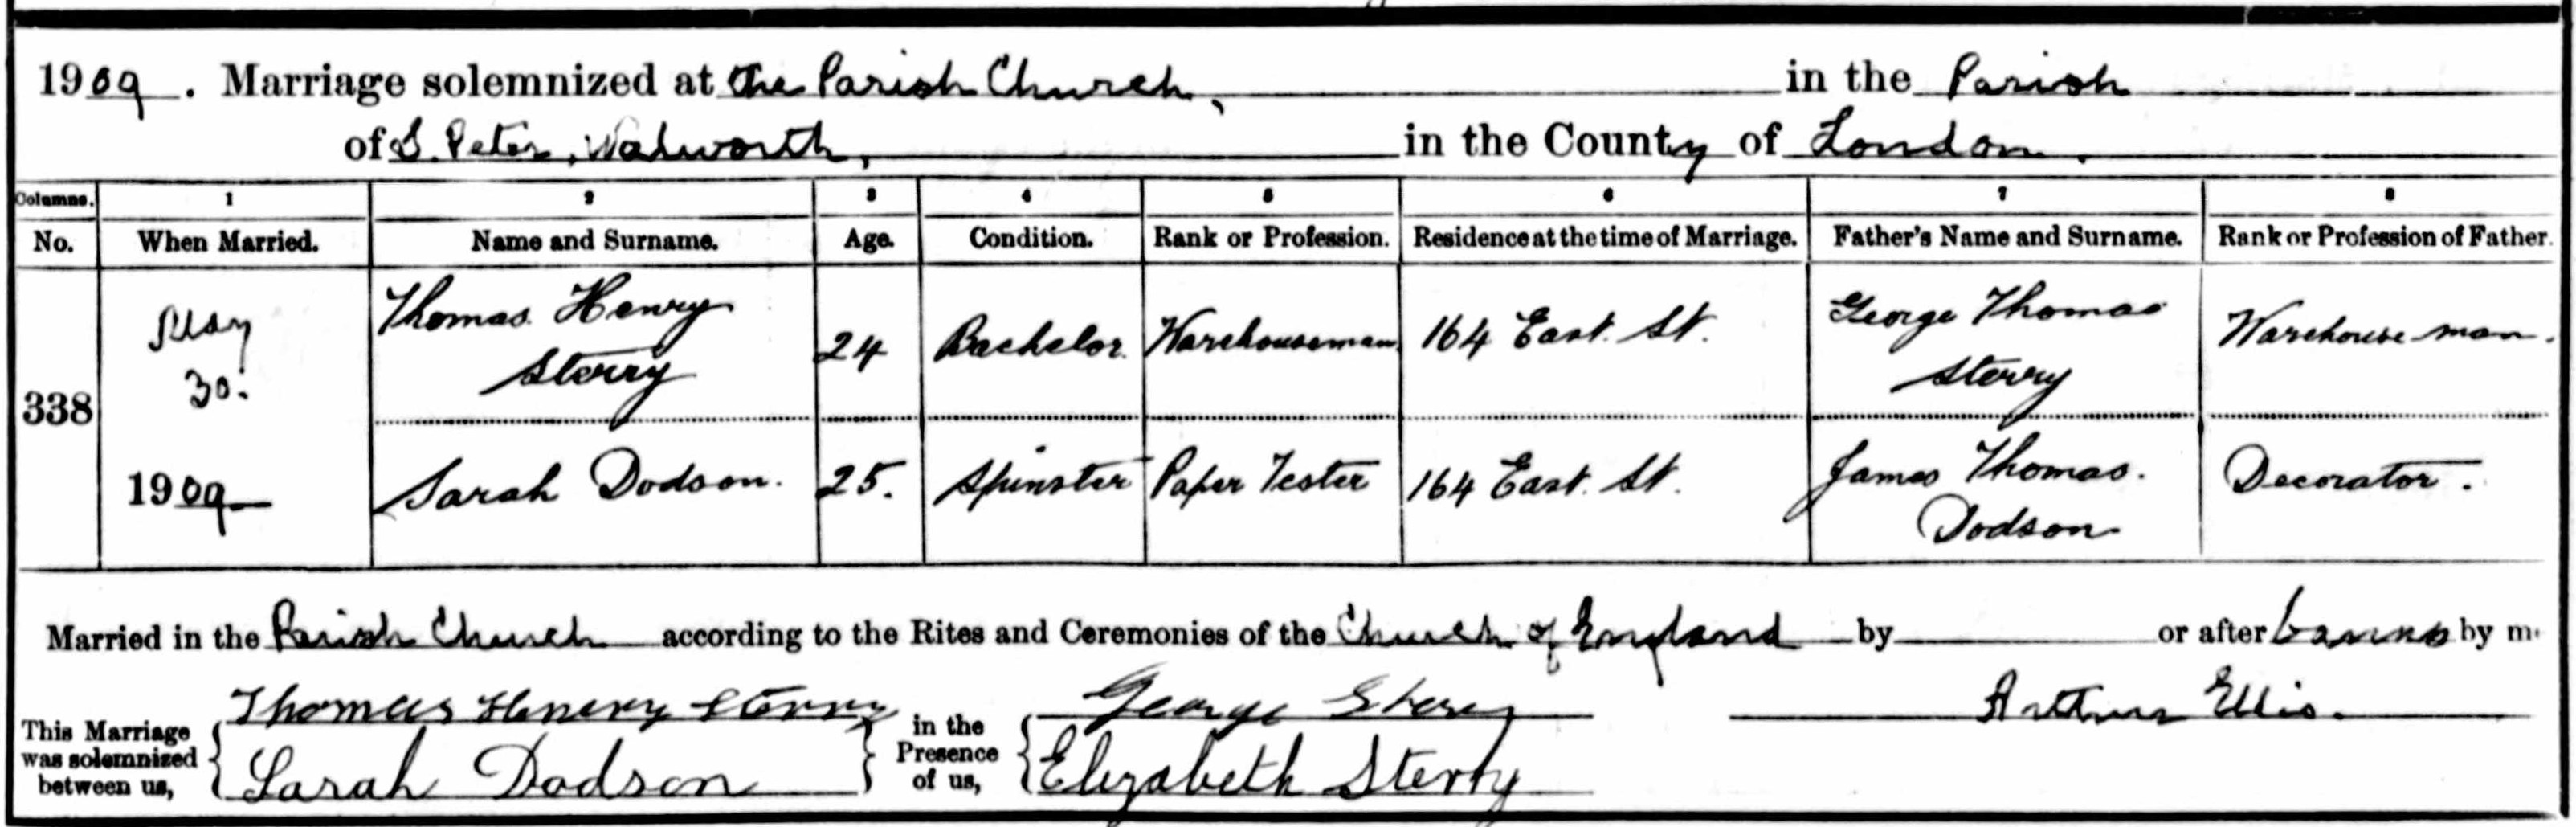 1909. Marriage solemnized at the Parish Church, in the Parish
of S. Peter, Walworth, in the County of London.
Columns. 1 2 3 4 5 6 7 8
No. When Married. Name and Surname. Age. Condition. Rank or Profession. Residence at the time of Marriage. Father's Name and Surname. Rank or Profession of Father.
338 May 30. 1909 Thomas Henry Sterry 24 Bachelor Warehouseman 164 East St. George Thomas Sterry Warehouse man.
Sarah Dodson. 25. Spinster Paper Tester 164 East St. James Thomas. Dodson Decorator.
Married in the Parish Church according to the Rites and Ceremonies of the Church of England by or after banns by m
This Marriage was solemnized between us, Thomas Henery Sterry Sarah Dodson in the Presence of us, George Sterry Elizabeth Sterry Arthur Ellis.